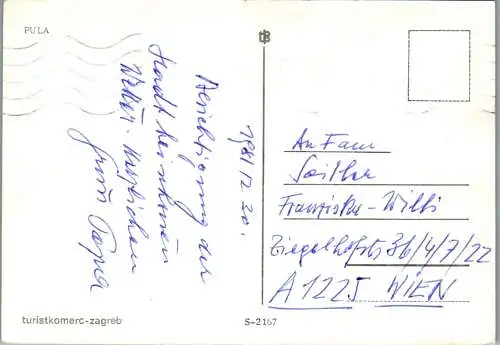 PULA
1981 12 20.
Besichtigung der
Stadt bei schönem
Wetter. Herzlichen
Gruß Papa
An Fam
Franziska - Willi
Ziegelhofstr 36/4/7/22
A 1225 WIEN
turistkomerc-zagreb
S-2167